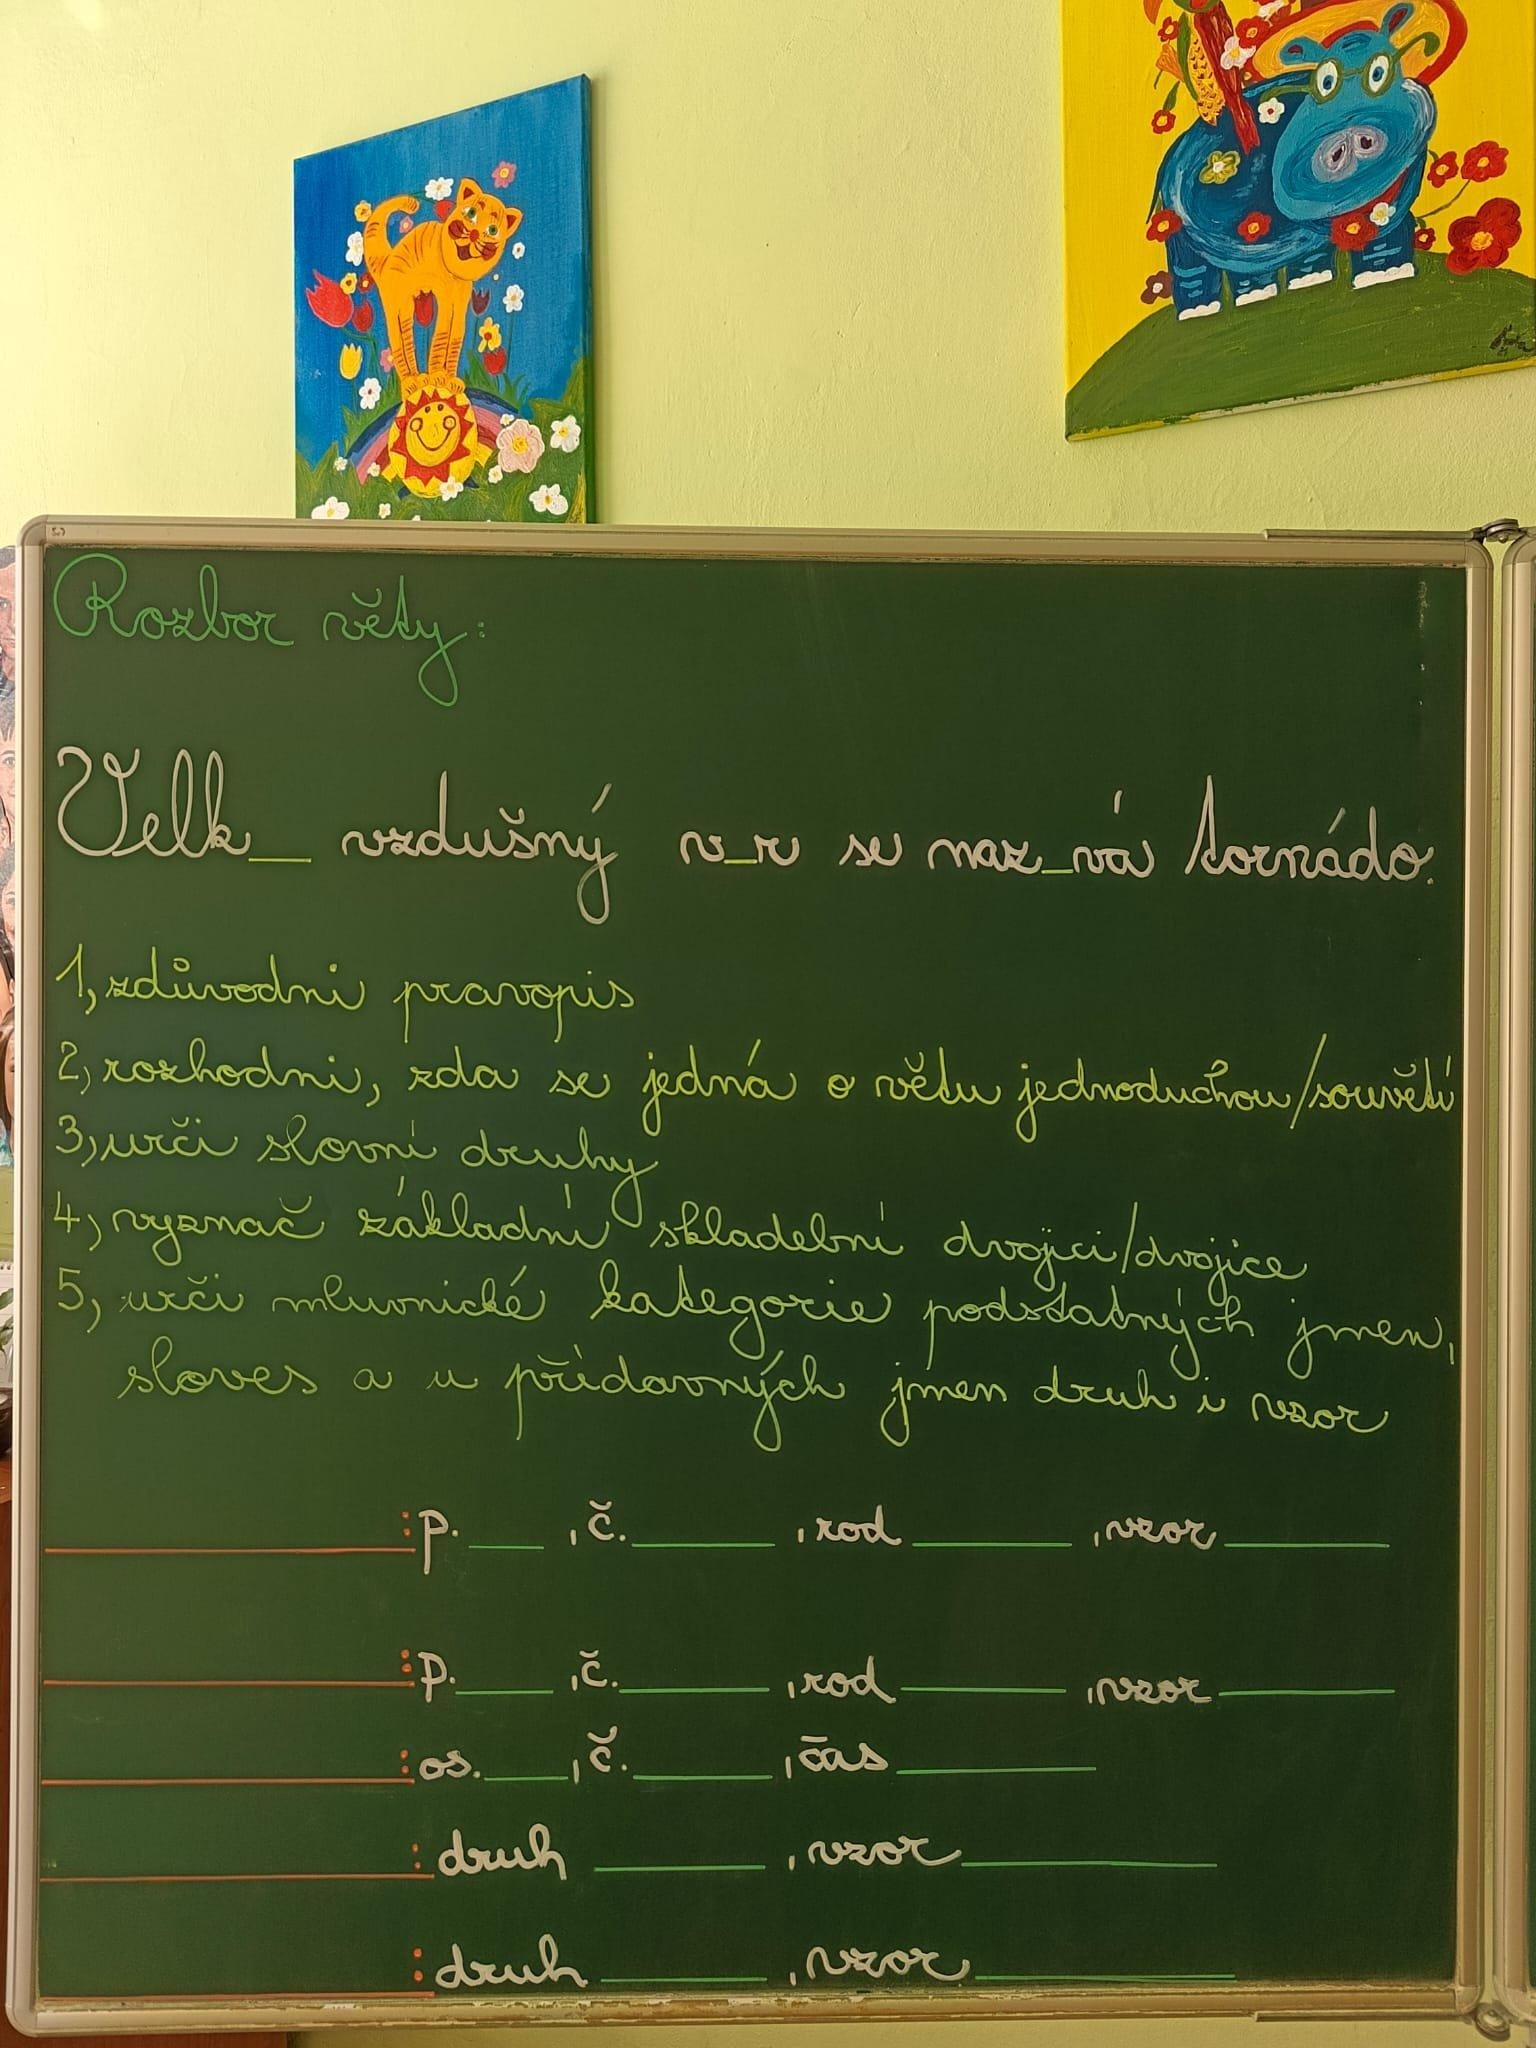 Rozbor věty:
Velk_ vzdušný v_r se naz_vá tornádo.
1, zdůvodni pravopis
2, rozhodni, zda se jedná o větu jednoduchou/souvětí
3, urči slovní druhy
4, vyznač základní skladební dvojici/dvojice
5, urči mluvnické kategorie podstatných jmen,
sloves a u přídavných jmen druh i vzor
________: p. ___, č. ____, rod ____, vzor ____
________: p. ___, č. ____, rod ____, vzor ____
________: os. ___, č. ____, čas ____
________: druh ____, vzor ____
________: druh ____, vzor ____